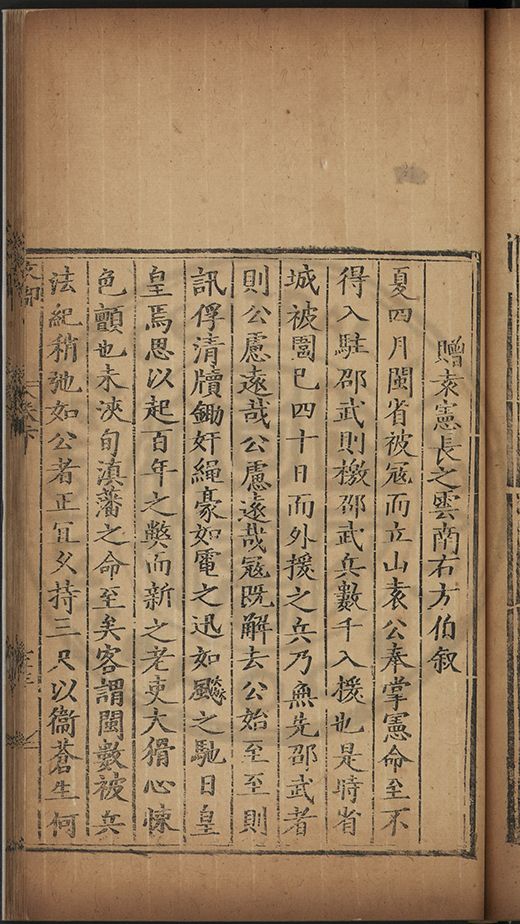 贈袁憲長之雲南右方伯叙
夏四月閩省被寇而立山袁公奉掌憲命至不
得入駐邵武則檄邵武兵數千入援也是時省
城被圍巳四十日而外援之兵乃無先邵武者
則公慮遠哉公慮遠哉寇既解去公始至至則
訊俘清牘鋤奸繩豪如電之迅如飈之馳日皇
皇焉思以起百年之獘而新之老吏大猾心悚
色顫也未浹旬滇藩之命至矣客謂閩數被兵
法紀稍弛如公者正冝久持三尺以衞蒼生何